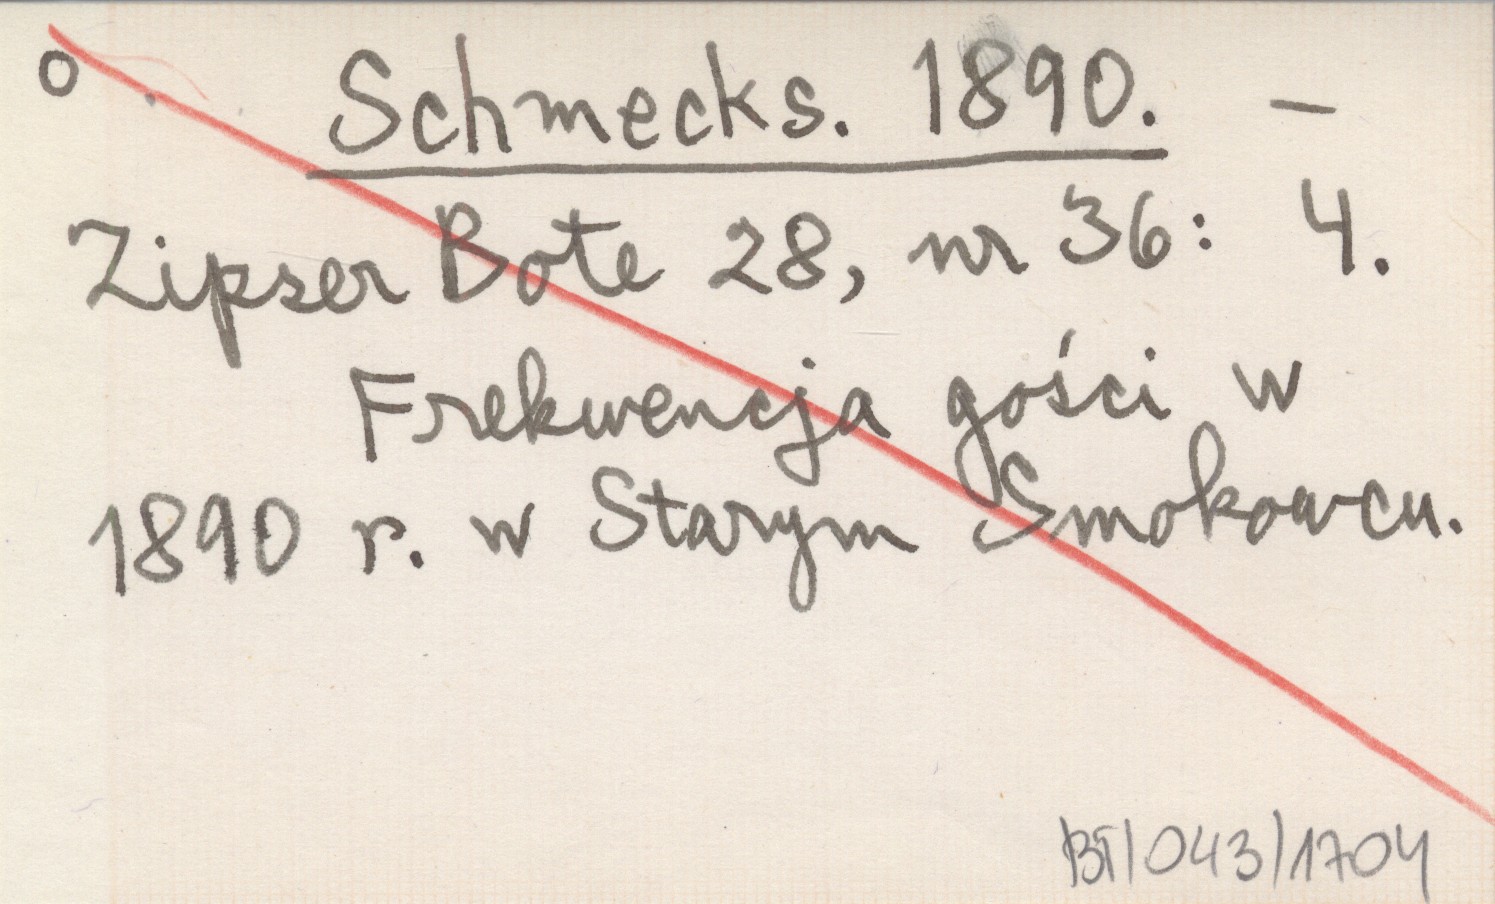 o Schmecks. 1890. –
Zipser Bote 28, nr 36: 4.
Frekwencja gości w
1890 r. w Starym Smokowcu.
BT/043/1704